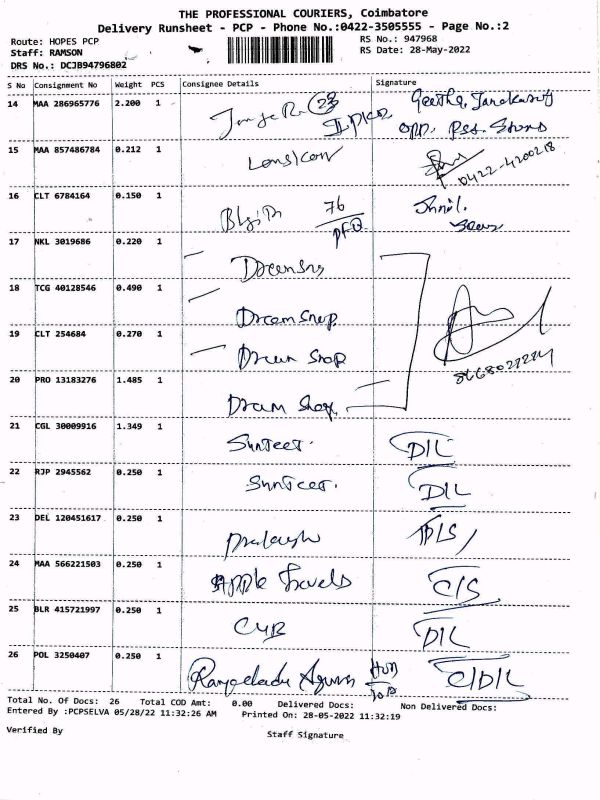 THE PROFESSIONAL COURIERS, Coimbatore
Delivery Runsheet - PCP - Phone No.:0422-3505555 - Page No.:2
Route: HOPES PCP
RS No.: 947968
Staff: RAMSON
RS Date: 28-May-2022
DRS No.: DCJB94796802
S No Consignment No Weight PCS Consignee Details Signature
14 MAA 286965776 2.200 1
15 MAA 857486784 0.212 1 0422-4200218
16 CLT 6784164 0.150 1 76
17 NKL 3019686 0.220 1
18 TCG 40128546 0.490 1 Dream Shop
19 CLT 254684 0.270 1 Dream Shop
20 PRO 13183276 1.485 1 Dream Shop
21 CGL 30009916 1.349 1 Sunteet. D/L
22 RJP 2945562 0.250 1 Sunteet. D/L
23 DEL 120451617 0.250 1
24 MAA 566221503 0.250 1 Apple Travels C/S
25 BLR 415721997 0.250 1 CUB D/L
26 POL 3250407 0.250 1 C/D/L
Total No. Of Docs: 26 Total COD Amt: 0.00 Delivered Docs: Non Delivered Docs:
Entered By :PCPSELVA 05/28/22 11:32:26 AM Printed On: 28-05-2022 11:32:19
Verified By
Staff Signature